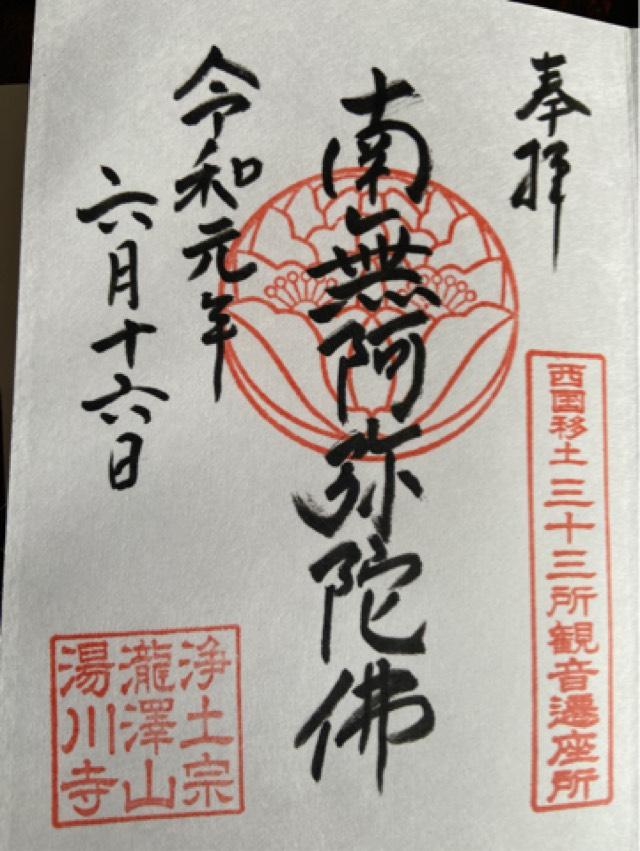 奉拝
西国移土三十三所観音遷座所
南無阿弥陀佛
令和元年
六月十六日
浄土宗
瀧澤山
湯川寺